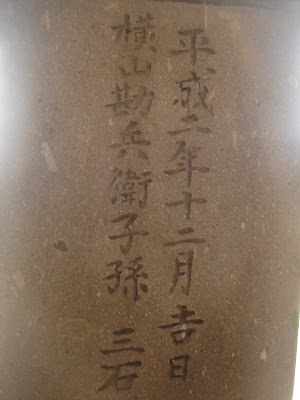 平成二年十二月𠮷日
横山勘兵衛子孫 三石